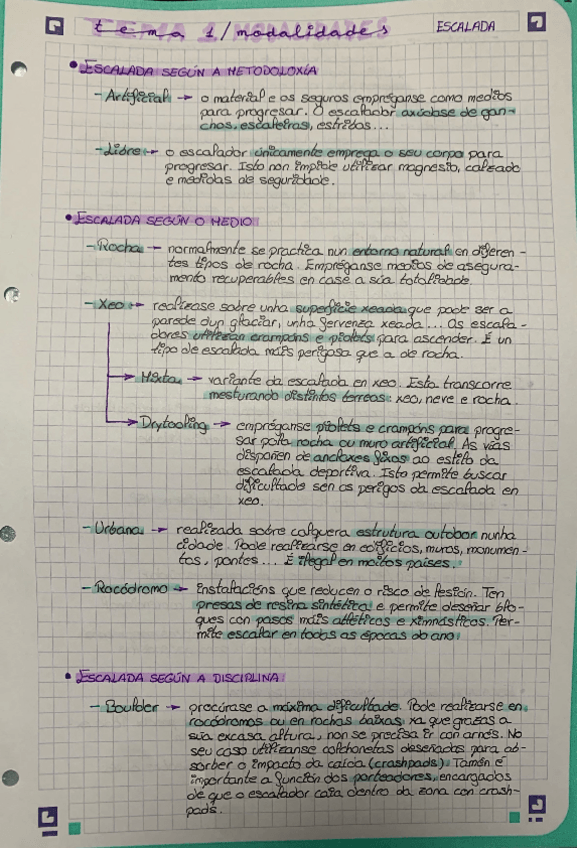 tema 1/modalidades
ESCALADA
• ESCALADA SEGÚN A METODOLOXÍA
- Artificial → o material e os seguros empréganse como medios
para progresar. O escalador axúdase de gan-
chos, escaleiras, estribos...
- Libre → o escalador únicamente emprega o seu corpo para
progresar. Isto non impide utilizar magnesio, calzado
e medidas de seguridade.
• ESCALADA SEGÚN O MEDIO
- Rocha → normalmente se practica nun entorno natural en diferen-
tes tipos de rocha. Empréganse medios de asegura-
mento recuperables en case a súa totalidade.
- Xeo → realízase sobre unha superficie xeada que pode ser a
parede dun glaciar, unha fervenza xeada... Os escala-
dores utilizan crampóns e piolets para ascender. É un
tipo de escalada máis perigosa que a de rocha.
→ Mixta → variante da escalada en xeo. Esta transcorre
mesturando distintos terreos: xeo, neve e rocha.
→ Drytooling → empréganse piolets e crampóns para progre-
sar pola rocha ou muro artificial. As vías
dispoñen de anclaxes fixos ao estilo da
escalada deportiva. Isto permite buscar
dificultade sen os perigos da escalada en
xeo.
- Urbana → realizada sobre calquera estrutura outdoor nunha
cidade. Pode realizarse en edificios, muros, monumen-
tos, pontes... É ilegal en moitos países.
- Rocódromo → instalacións que reducen o risco de lesión. Ten
presas de resina sintética e permite deseñar blo-
ques con pasos máis atléticos e ximnásticos. Per-
mite escalar en todas as épocas do ano.
• ESCALADA SEGÚN A DISCIPLINA
- Boulder → procúrase a máxima dificultade. Pode realizarse en
rocódromos ou en rochas baixas, xa que grazas a
súa excasa altura, non se precisa ir con arnés. No
seu caso utilízanse colchonetas deseñadas para ab-
sorber o impacto da caída (crashpads). Tamén é
importante a función dos porteadores, encargados
de que o escalador caia dentro da zona con crash-
pads.